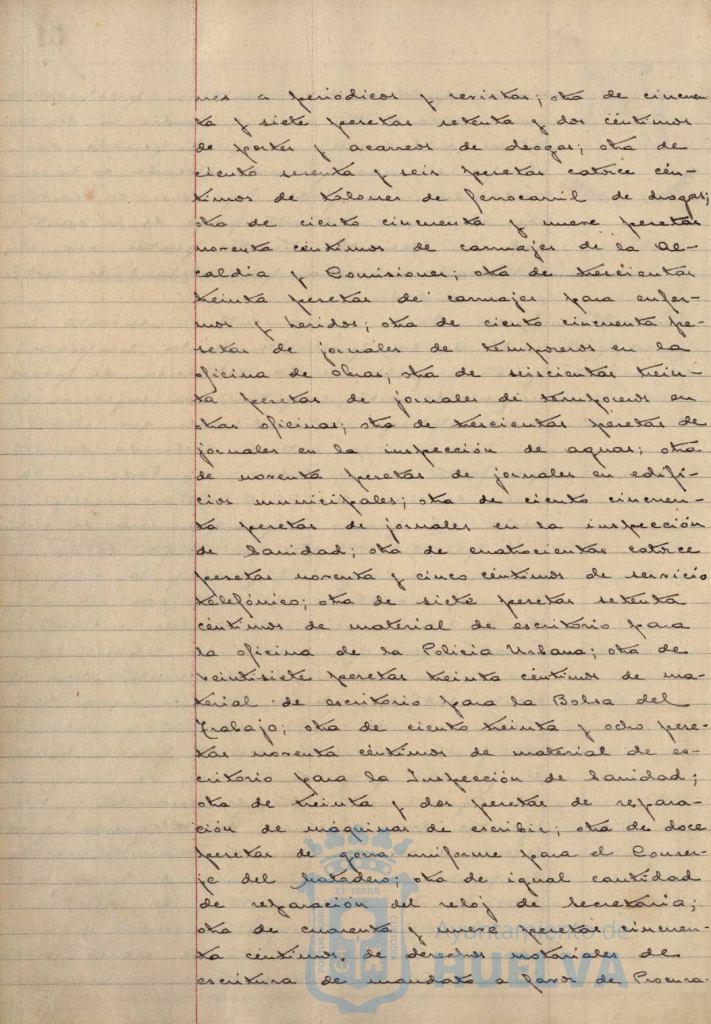 nes a periódicos y revistas; otra de cincuen-
ta y siete pesetas setenta y dos céntimos
de portes y acarreos de drogas; otra de
ciento sesenta y seis pesetas catorce cén-
timos de talones de ferrocarril de drogas;
otra de ciento cincuenta y nueve pesetas
noventa céntimos de carruajes de la Al-
caldía y Comisiones; otra de trescientas
treinta pesetas de carruajes para enfer-
mos y heridos; otra de ciento cincuenta pe-
setas de jornales de temporeros en la
oficina de Obras; otra de seiscientas trein-
ta pesetas de jornales de temporeros en
otras oficinas; otra de trescientas pesetas de
jornales en la inspección de aguas; otra
de noventa pesetas de jornales en edifi-
cios municipales; otra de ciento cincuen-
ta pesetas de jornales en la inspección
de Sanidad; otra de cuatrocientas catorce
pesetas noventa y cinco céntimos de servicio
telefónico; otra de siete pesetas setenta
céntimos de material de escritorio para
la oficina de la Policía Urbana; otra de
veintisiete pesetas treinta céntimos de ma-
terial de escritorio para la Bolsa del
Trabajo; otra de ciento treinta y ocho pese-
tas noventa céntimos de material de es-
critorio para la Inspección de Sanidad;
otra de treinta y dos pesetas de repara-
ción de máquinas de escribir; otra de doce
pesetas de gorra uniforme para el Conser-
je del Matadero; otra de igual cantidad
de reparación del reloj de Secretaría;
otra de cuarenta y nueve pesetas cincuen-
ta céntimos de derechos notariales de
escritura de mandato a favor de Procura-
Ayuntamiento de
HUELVA